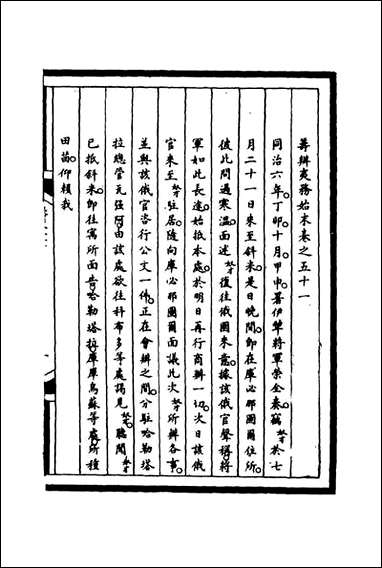 籌辦夷務始末卷之五十一
同治六年。丁卯。十月。甲申。署伊犂將軍榮全奏。竊奴才於七
月二十一日來至斜米。是日晚間。即在庫必那圖爾住所。
彼此問過寒溫。面述奴才復往俄國來意。據該俄官聲稱。將
軍如此長途。始抵本處。於明日再行商辦一切。次日該俄
官來至奴才駐居。隨向庫必那圖爾面議此次奴才所辦各事。
並與該俄官咨行公文一件。正在會辦之間。分駐哈勒塔
拉總管瓦强阿。由該處欲往科布多等處謁見奴才。聽聞奴才
已抵斜米。即往寓所面告。哈勒塔拉。庫庫烏蘇等處。所種
田苗。仰賴我